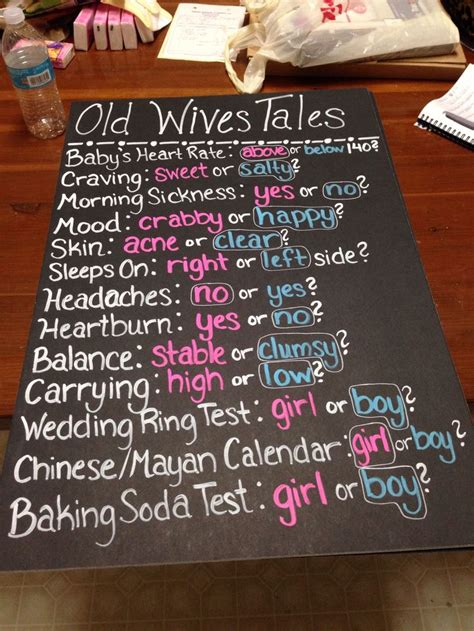 Old Wives Tales
Baby's Heart Rate: above or below 140?
Craving: sweet or salty?
Morning Sickness: yes or no?
Mood: crabby or happy?
Skin: acne or clear?
Sleeps On: right or left side?
Headaches: no or yes?
Heartburn: yes or no?
Balance: stable or clumsy?
Carrying: high or low?
Wedding Ring Test: girl or boy?
Chinese/Mayan Calendar: girl or boy?
Baking Soda Test: girl or boy?